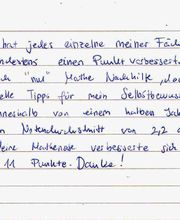 hat jedes einzelne meiner Fäch
einen Punkt verbesser
"nur" Mathe Nachhilfe
Tipps für mein Selbstbewuss
nnerhalb von einem halben Jah
Notendurchschnitt von 2,2
Mathenote verbesserte sich
11 Punkte. Danke!